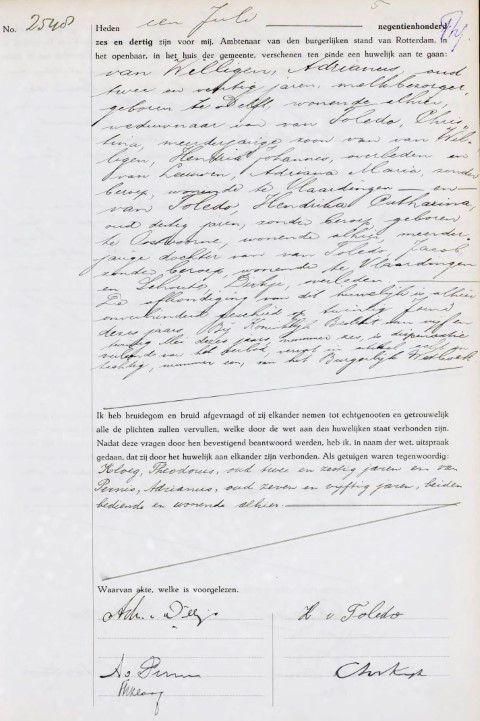 No. 2548
Heden een Juli negentienhonderd
zes en dertig zijn voor mij, Ambtenaar van den burgerlijken stand van Rotterdam, in
het openbaar, in het huis der gemeente, verschenen ten einde een huwelijk aan te gaan:
van Willigen, Adrianus, oud
twee en jaren, melkbezorger,
geboren te Delft, wonende alhier,
weduwnaar van van Toledo, Chris-
tina, meerderjarige zoon van van Wil-
ligen, Hendrik Johannes, overleden en
van Leeuwen, Adriana Maria, zonder
beroep, wonende te Vlaardingen — en —
van Toledo, Hendrika Catharina,
oud dertig jaren, zonder beroep, geboren
te Oostvoorne, wonende alhier, meerder-
jarige dochter van van Toledo, Jacob
zonder beroep, wonende te Vlaardingen
en Schouts, overleden
De afkondiging van dit huwelijk is alhier
onverhinderd geschied op twintig Juni
dezes jaars. Bij Koninklijk Besluit van vijf en
twintig Mei dezes jaars, nummer zes, is dispensatie
verleend van het verbod, vervat in artikel acht en
tachtig, nummer een, van het Burgerlijk Wetboek
Ik heb bruidegom en bruid afgevraagd of zij elkander nemen tot echtgenooten en getrouwelijk
alle de plichten zullen vervullen, welke door de wet aan den huwelijken staat verbonden zijn.
Nadat deze vragen door hen bevestigend beantwoord werden, heb ik, in naam der wet, uitspraak
gedaan, dat zij door het huwelijk aan elkander zijn verbonden. Als getuigen waren tegenwoordig:
Kloeg, Theodorus, oud twee en zestig jaren en van
Pernis, Adrianus, oud zeven en vijftig jaren, beiden
bediende en wonende alhier
Waarvan akte, welke is voorgelezen.
H v Toledo